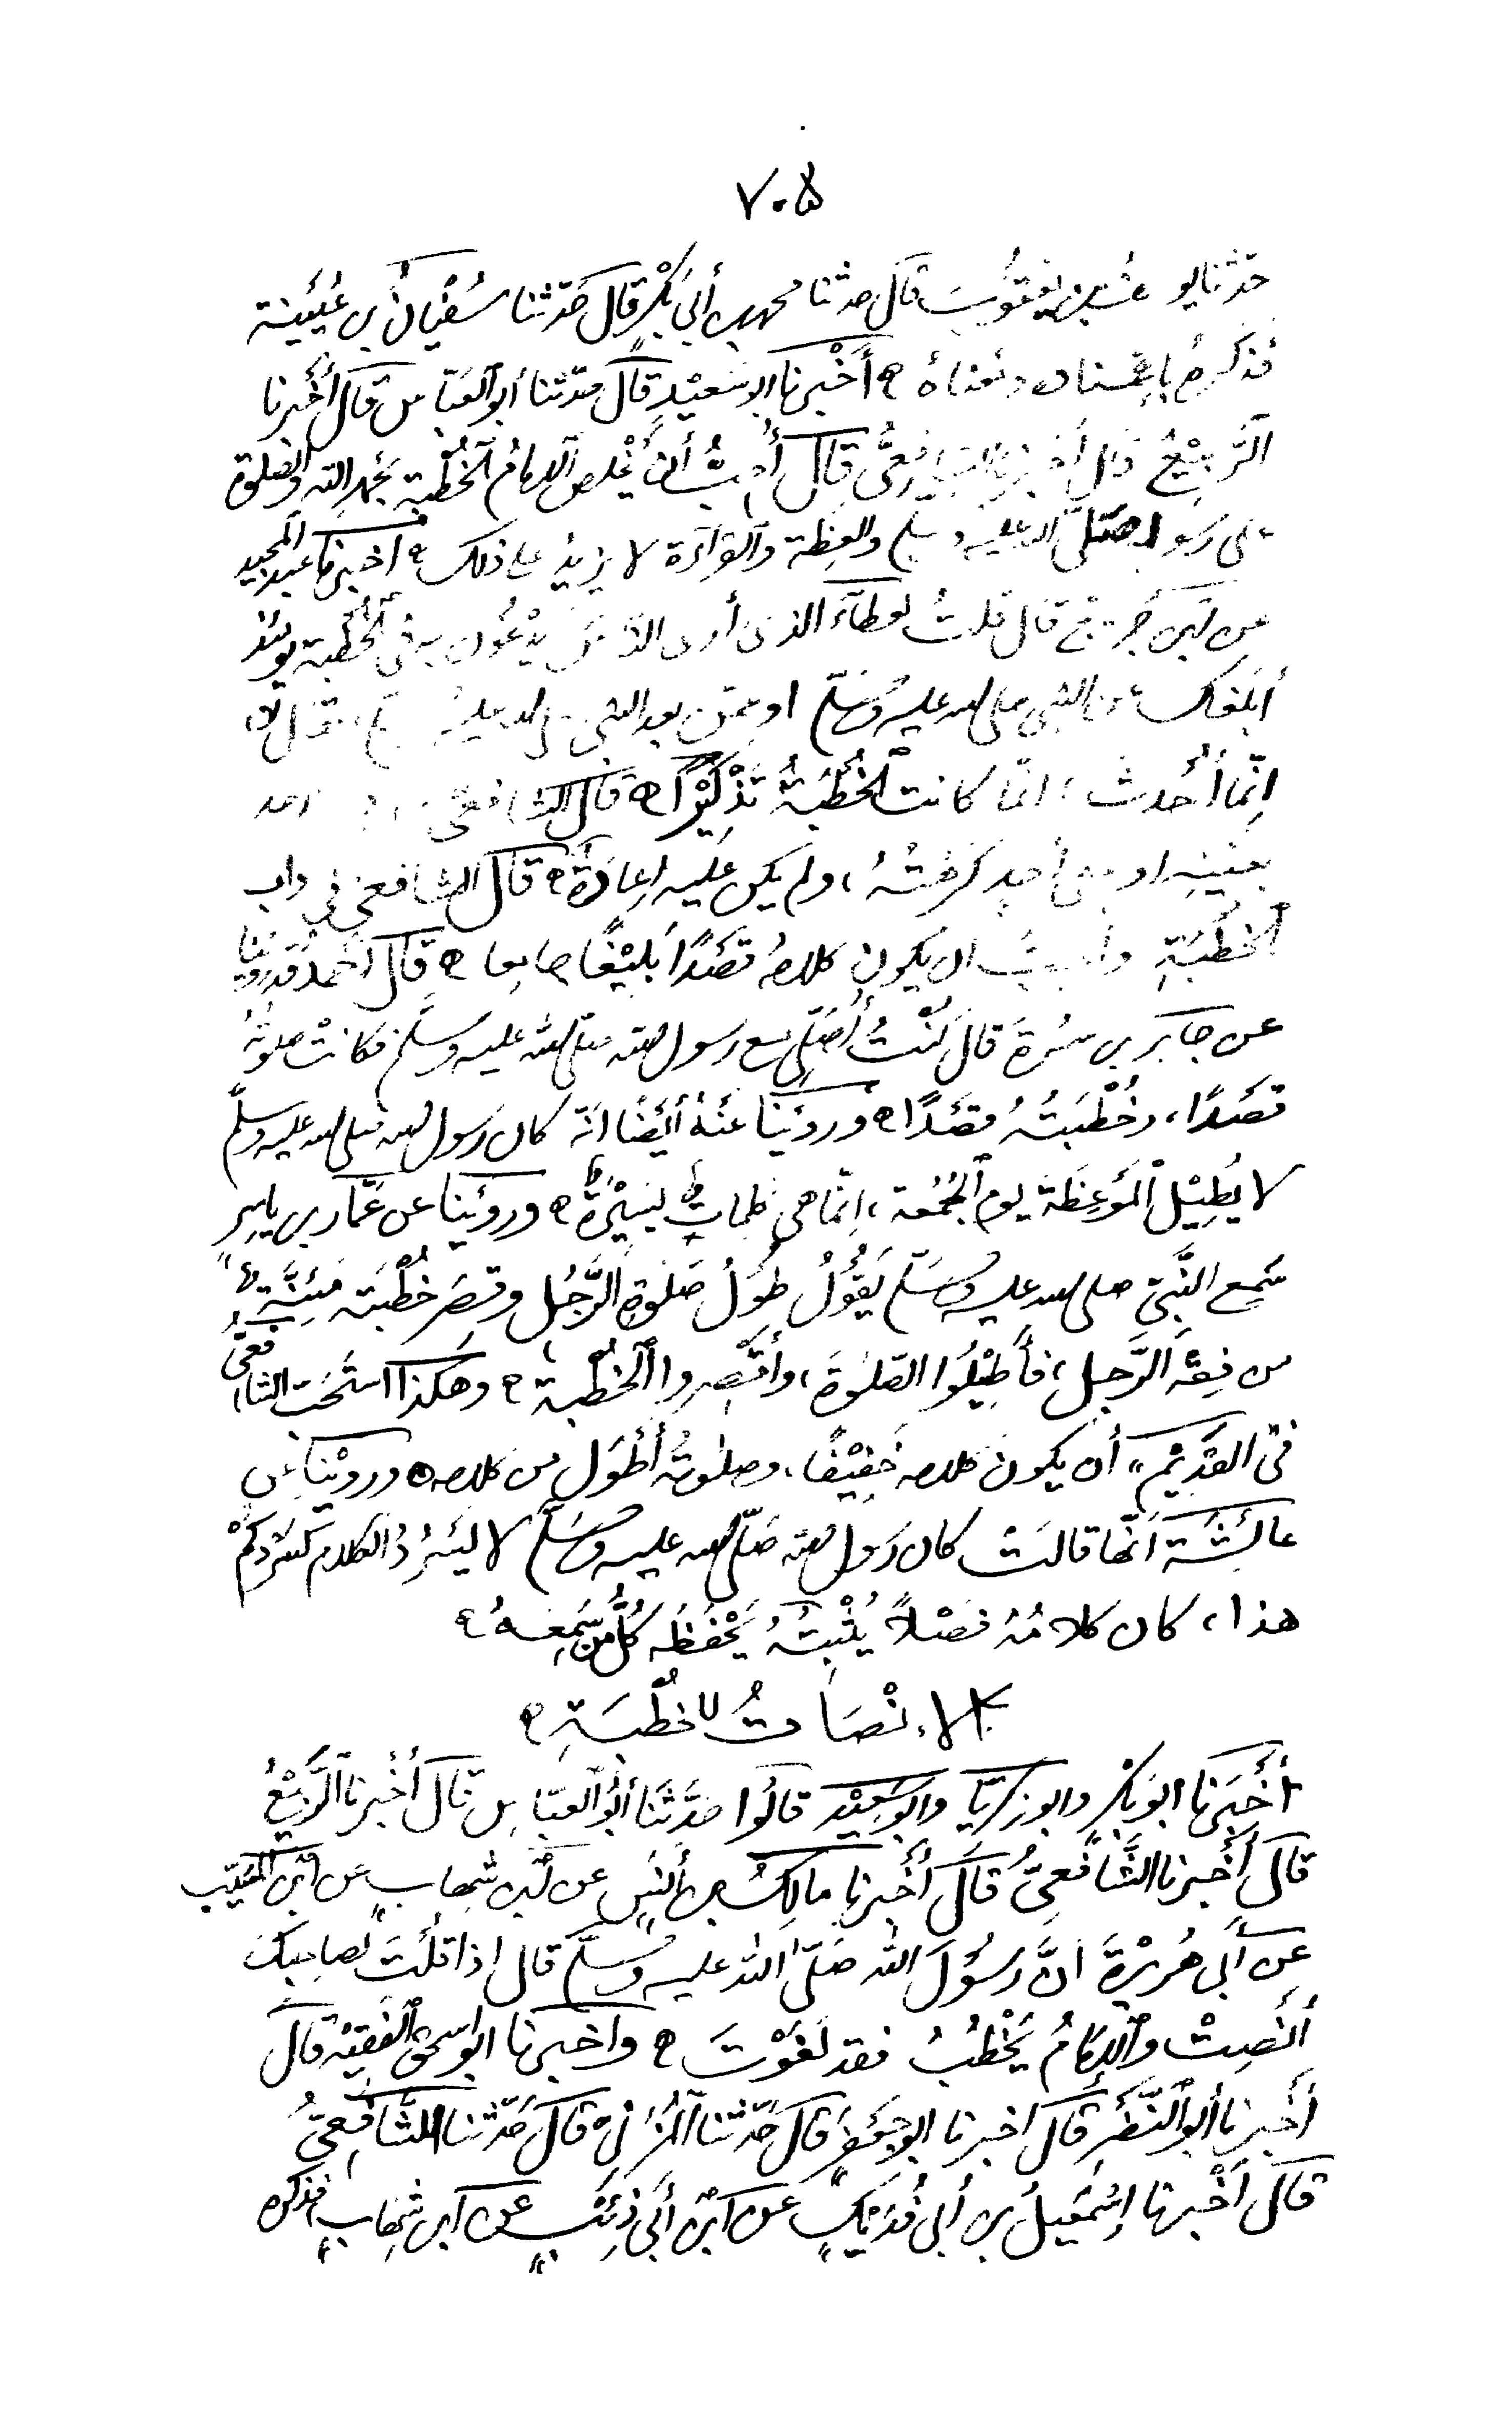 ٧٠٥
حدثنا يوسف بن يعقوب قال حدثنا محمد بن أبي بكر قال حدثنا سفيان بن عيينة
فذكره بإسناده ومعناه ه أخبرنا ابو سعيد قال حدثنا أبو العباس قال أخبرنا
الربيع قال أخبرنا الشافعي قال أحب أن يخلص الامام الخطبة بحمد الله والصلوة
على رسوله صلى الله عليه وسلم والعظة والقراءة لا يزيد على ذلك ه أخبرنا عبد المجيد
عن ابن جريج قال قلت لعطاء الذي أرى الناس يدعون به في الخطبة يومئذ
أبلغك عن النبي صلى الله عليه وسلم او عمن بعد النبي صلى الله عليه قال لا
إنما أحدث، انما كانت الخطبة تذكيرا ه قال الشافعي احد
بعينه او على أحد كرهته، ولم يكن عليه إعادة ه قال الشافعي في
الخطبة وأحب ان يكون كلامه قصدا بليغا جامعا ه قال أحمد قد روينا
عن جابر بن سمرة قال كنت أصلي مع رسول الله صلى الله عليه وسلم فكانت صلوته
قصدا، وخطبته قصدا ه وروينا عنه أيضا انه كان رسول الله صلى الله عليه وسلم
لا يطيل الموعظة يوم الجمعة، إنما هي كلمات يسيرة ه وروينا عن عمار بن ياسر
سمع النبي صلى الله عليه وسلم يقول طول صلوة الرجل وقصر خطبته مئنة
من فقه الرجل، فأطيلوا الصلوة، وأقصروا الخطبة ه وهكذا استحب الشافعي
في القديم، أن يكون كلامه خفيفا، وصلوته أطول من كلامه ه وروينا عن
عائشة أنها قالت كان رسول الله صلى الله عليه وسلم لا يسرد الكلام كسردكم
هذا، كان كلامه فصلا يثبته يحفظه كل من سمعه ه
الإنصات للخطبة ه
أخبرنا ابو بكر وابو زكريا وابو سعيد قالوا حدثنا أبو العباس قال أخبرنا الربيع
قال أخبرنا الشافعي قال أخبرنا مالك بن أنس عن ابن شهاب عن ابن المسيب
عن أبي هريرة ان رسول الله صلى الله عليه وسلم قال اذا قلت لصاحبك
أنصت والإمام يخطب فقد لغوت ه واخبرنا ابو اسحق الفقيه قال
أخبرنا أبو النضر قال اخبرنا ابو جعفر قال حدثنا المزني قال حدثنا الشافعي
قال أخبرنا إسمعيل بن أبي فديك عن ابن أبي ذئب عن ابن شهاب فذكره